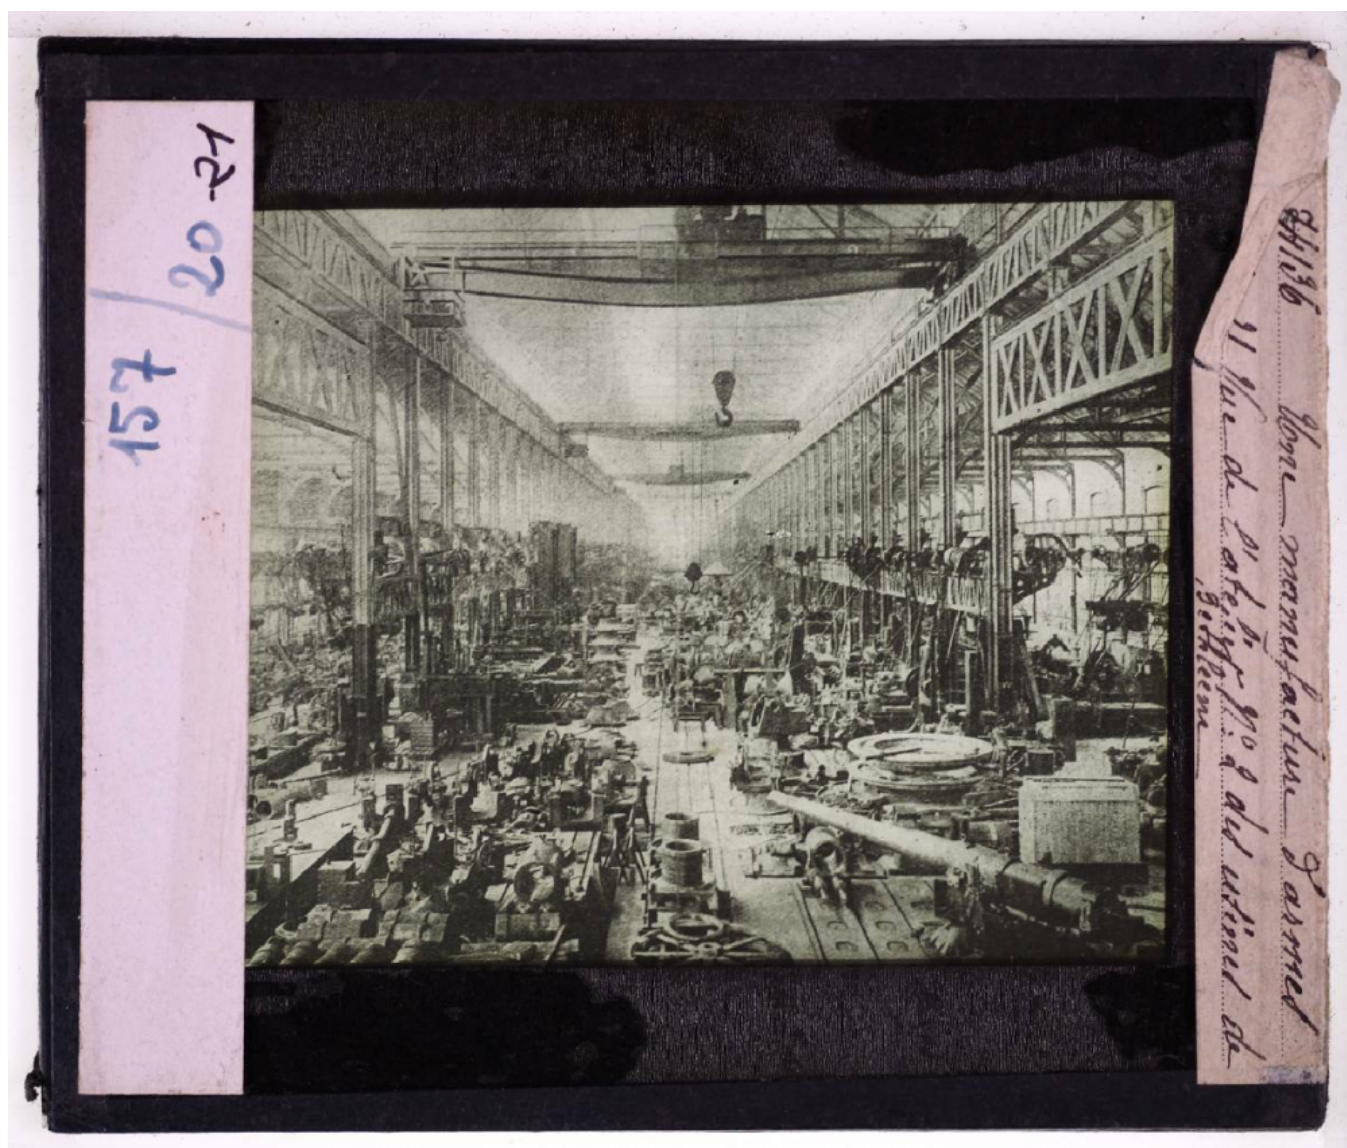 157 / 20-21
Une manufacture d'armes
Vue de l'atelier No 2 des usines de
Bethleem